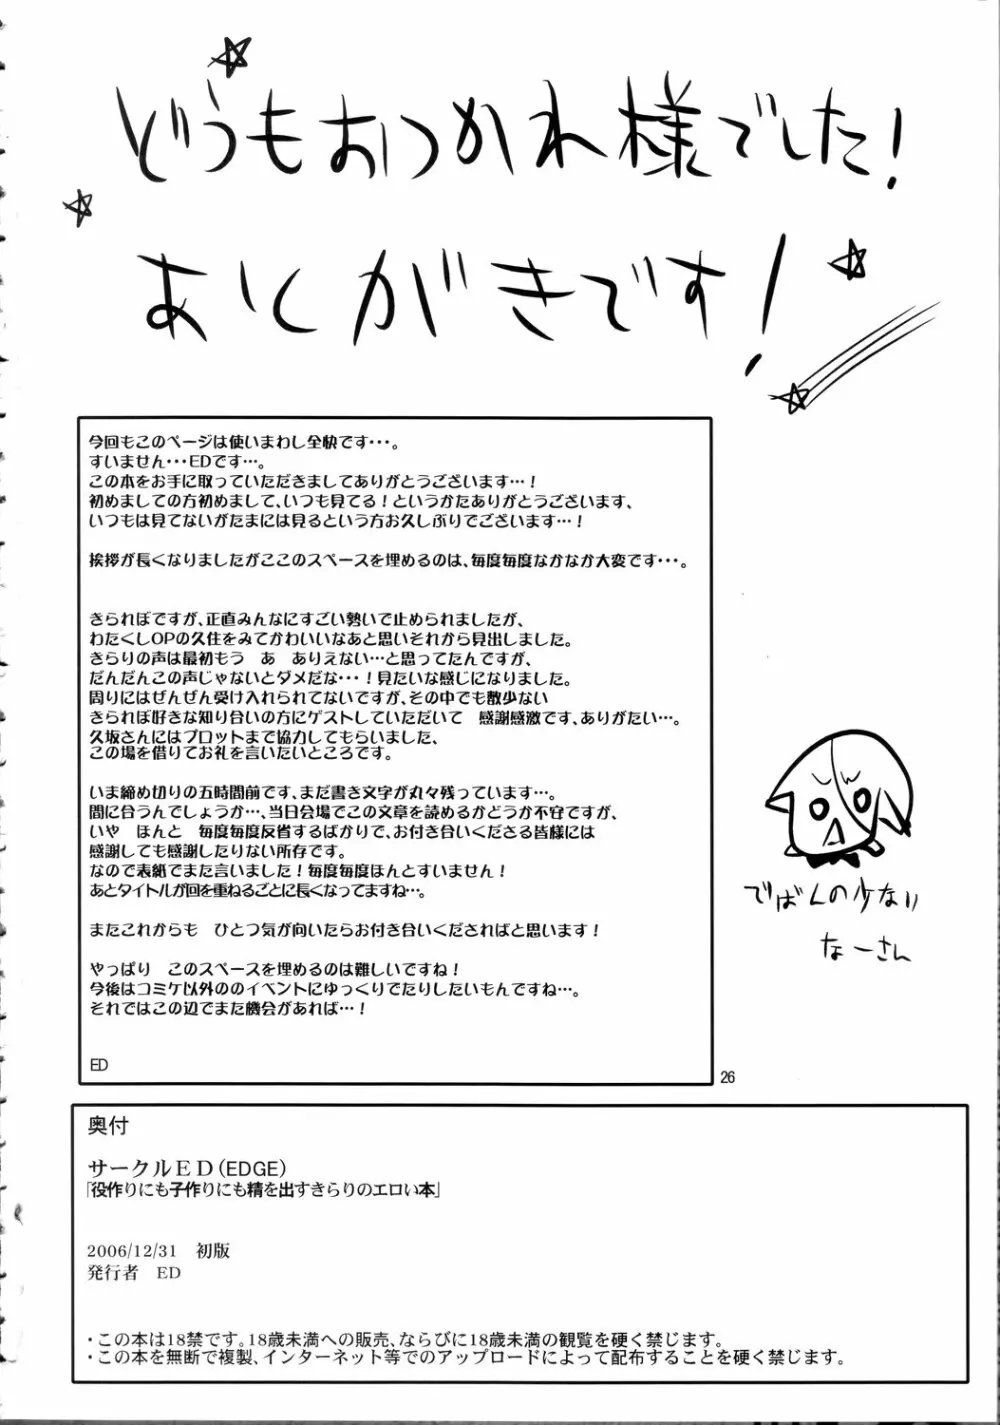 どうもおつかれ様でした!
あとがきです!
今回もこのページは使いまわし全快です・・・。
すいません・・・EDです…。
この本をお手に取っていただきましてありがとうございます…!
初めましての方初めまして、いつも見てる!というかたありがとうございます、
いつもは見てないがたまには見るという方お久しぶりでございます…!
挨拶が長くなりましたがここのスペースを埋めるのは、毎度毎度なかなか大変です・・・。
きられぼですが、正直みんなにすごい勢いで止められましたが、
わたくしOPの久住をみてかわいいなあと思いそれから見出しました。
きらりの声は最初もう あ ありえない…と思ってたんですが、
だんだんこの声じゃないとダメだな・・・!見たいな感じになりました。
周りにはぜんぜん受け入れられてないですが、その中でも数少ない
きられぼ好きな知り合いの方にゲストしていただいて 感謝感激です、ありがたい…。
久坂さんにはプロットまで協力してもらいました、
この場を借りてお礼を言いたいところです。
いま締め切りの五時間前です、まだ書き文字が丸々残っています…。
間に合うんでしょうか…、当日会場でこの文章を読めるかどうか不安ですが、
いや ほんと 毎度毎度反省するばかりで、お付き合いくださる皆様には
感謝しても感謝したりない所存です。
なので表紙でまた言いました!毎度毎度ほんとすいません!
あとタイトルが回を重ねるごとに長くなってますね…。
またこれからも ひとつ気が向いたらお付き合いくださればと思います!
やっぱり このスペースを埋めるのは難しいですね!
今後はコミケ以外ののイベントにゆっくりでたりしたいもんですね…。
それではこの辺でまた機会があれば…!
ED
でばんの少ない
なーさん
26
奥付
サークルED(EDGE)
「役作りにも子作りにも精を出すきらりのエロい本」
2006/12/31 初版
発行者 ED
・この本は18禁です。18歳未満への販売、ならびに18歳未満の観覧を硬く禁じます。
・この本を無断で複製、インターネット等でのアップロードによって配布することを硬く禁じます。